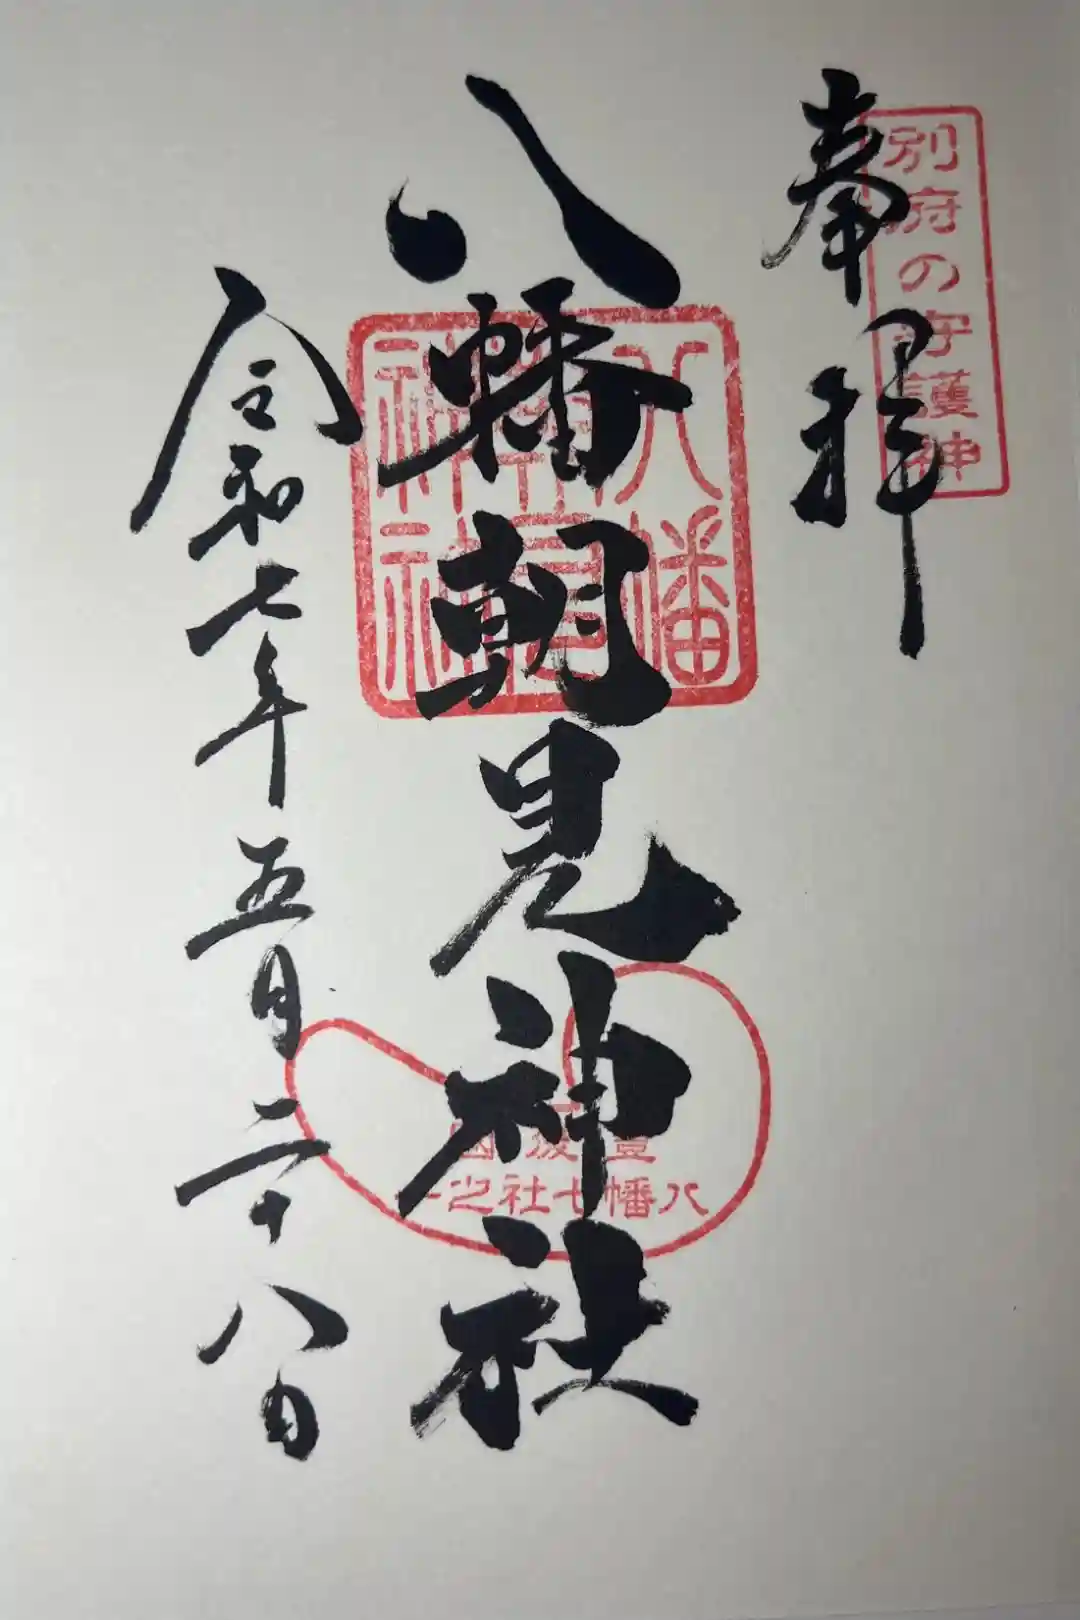 別府の守護神
奉拝
八幡朝見神社
八幡朝見神社
豊後国
八幡七社之一
令和七年五月二十八日